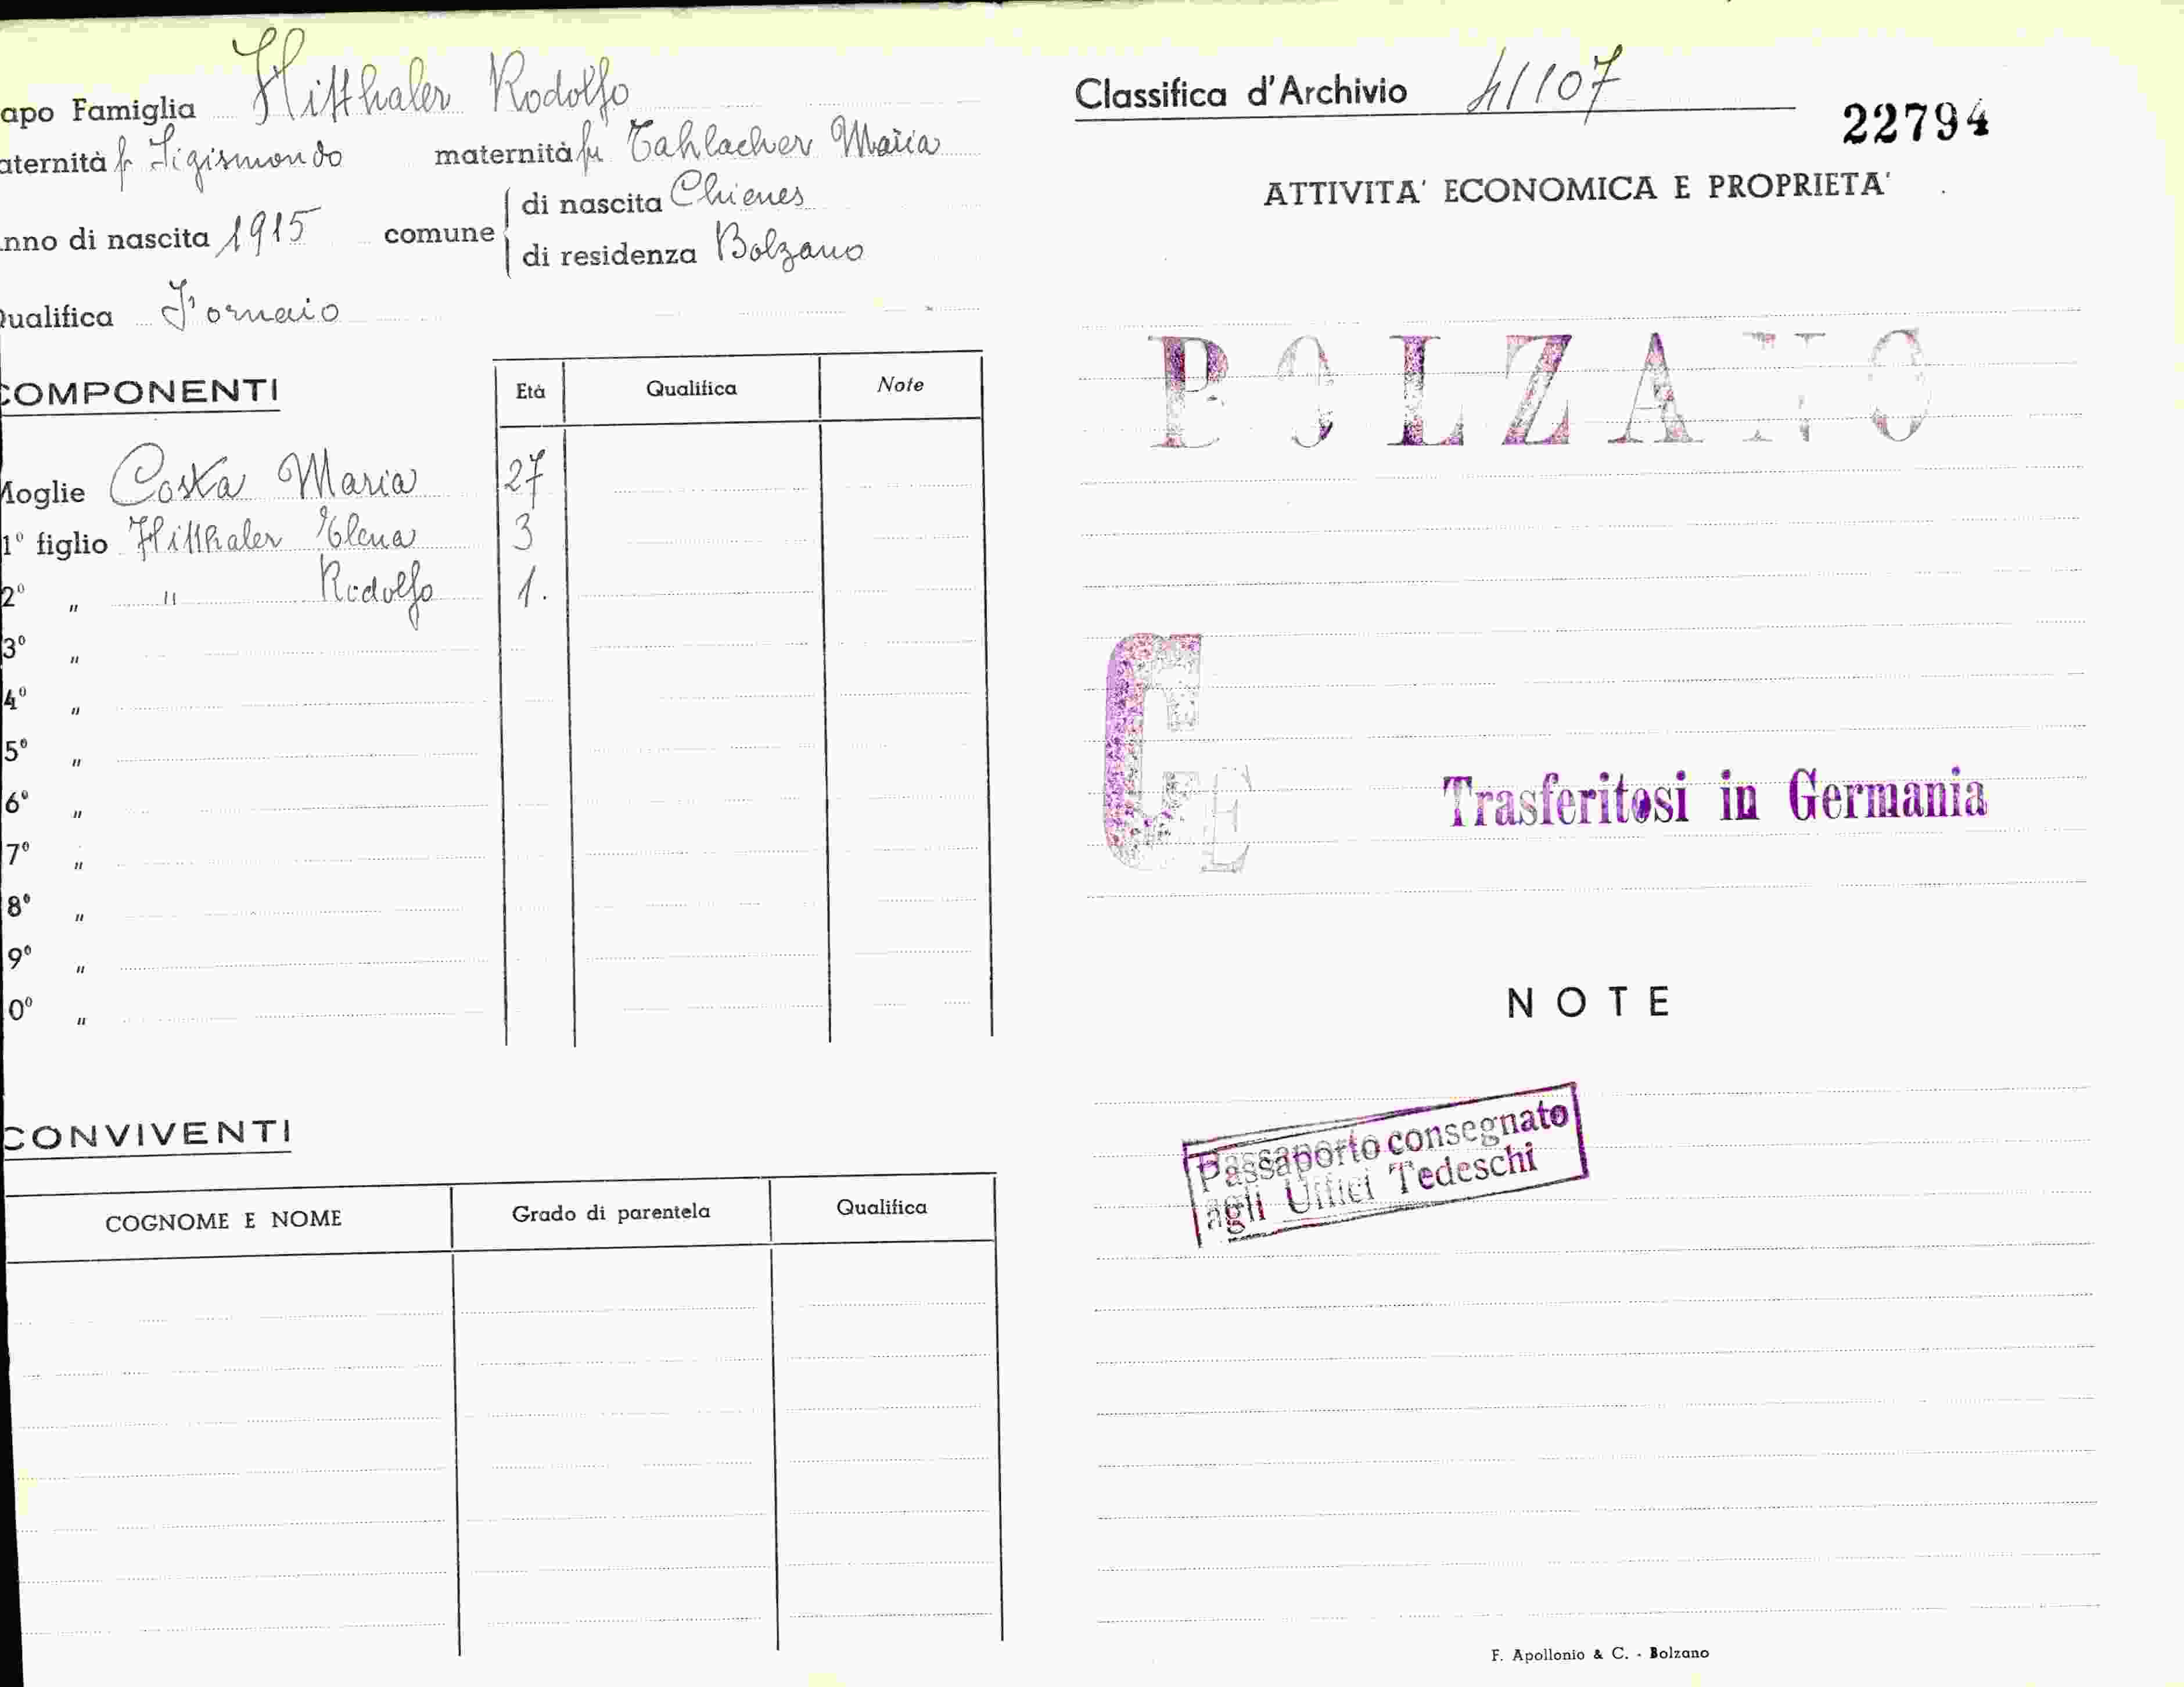 apo Famiglia Hitthaler Rodolfo
aternità f. Sigismondo maternità fu Tahlacher Maria
nno di nascita 1915 comune di nascita Chienes
di residenza Bolzano
Qualifica Fornaio
COMPONENTI Età Qualifica Note
Moglie Costa Maria 27
1º figlio Hitthaler Elena 3
2º " " Rodolfo 1.
3º "
4º "
5º "
6º "
7º "
8º "
9º "
0º "
CONVIVENTI
COGNOME E NOME Grado di parentela Qualifica
Classifica d'Archivio 41107
22794
ATTIVITA' ECONOMICA E PROPRIETA'
BOLZANO
C
E
Trasferitosi in Germania
NOTE
Passaporto consegnato
agli Uffici Tedeschi
F. Apollonio & C. - Bolzano